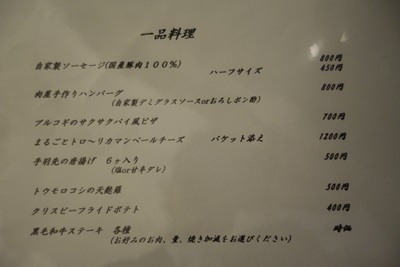 一品料理
自家製ソーセージ(国産豚肉100%) 800円
ハーフサイズ 450円
肉屋手作りハンバーグ 800円
(自家製デミグラスソースorおろしポン酢)
プルコギのサクサクパイ風ピザ 700円
まるごとトロ〜リカマンベールチーズ バケット添え 1200円
手羽先の唐揚げ 6ヶ入り 500円
(塩or甘辛ダレ)
トウモロコシの天麩羅 500円
クリスピーフライドポテト 400円
黒毛和牛ステーキ 各種 時価
(お好みのお肉、量、焼き加減をお選びください)